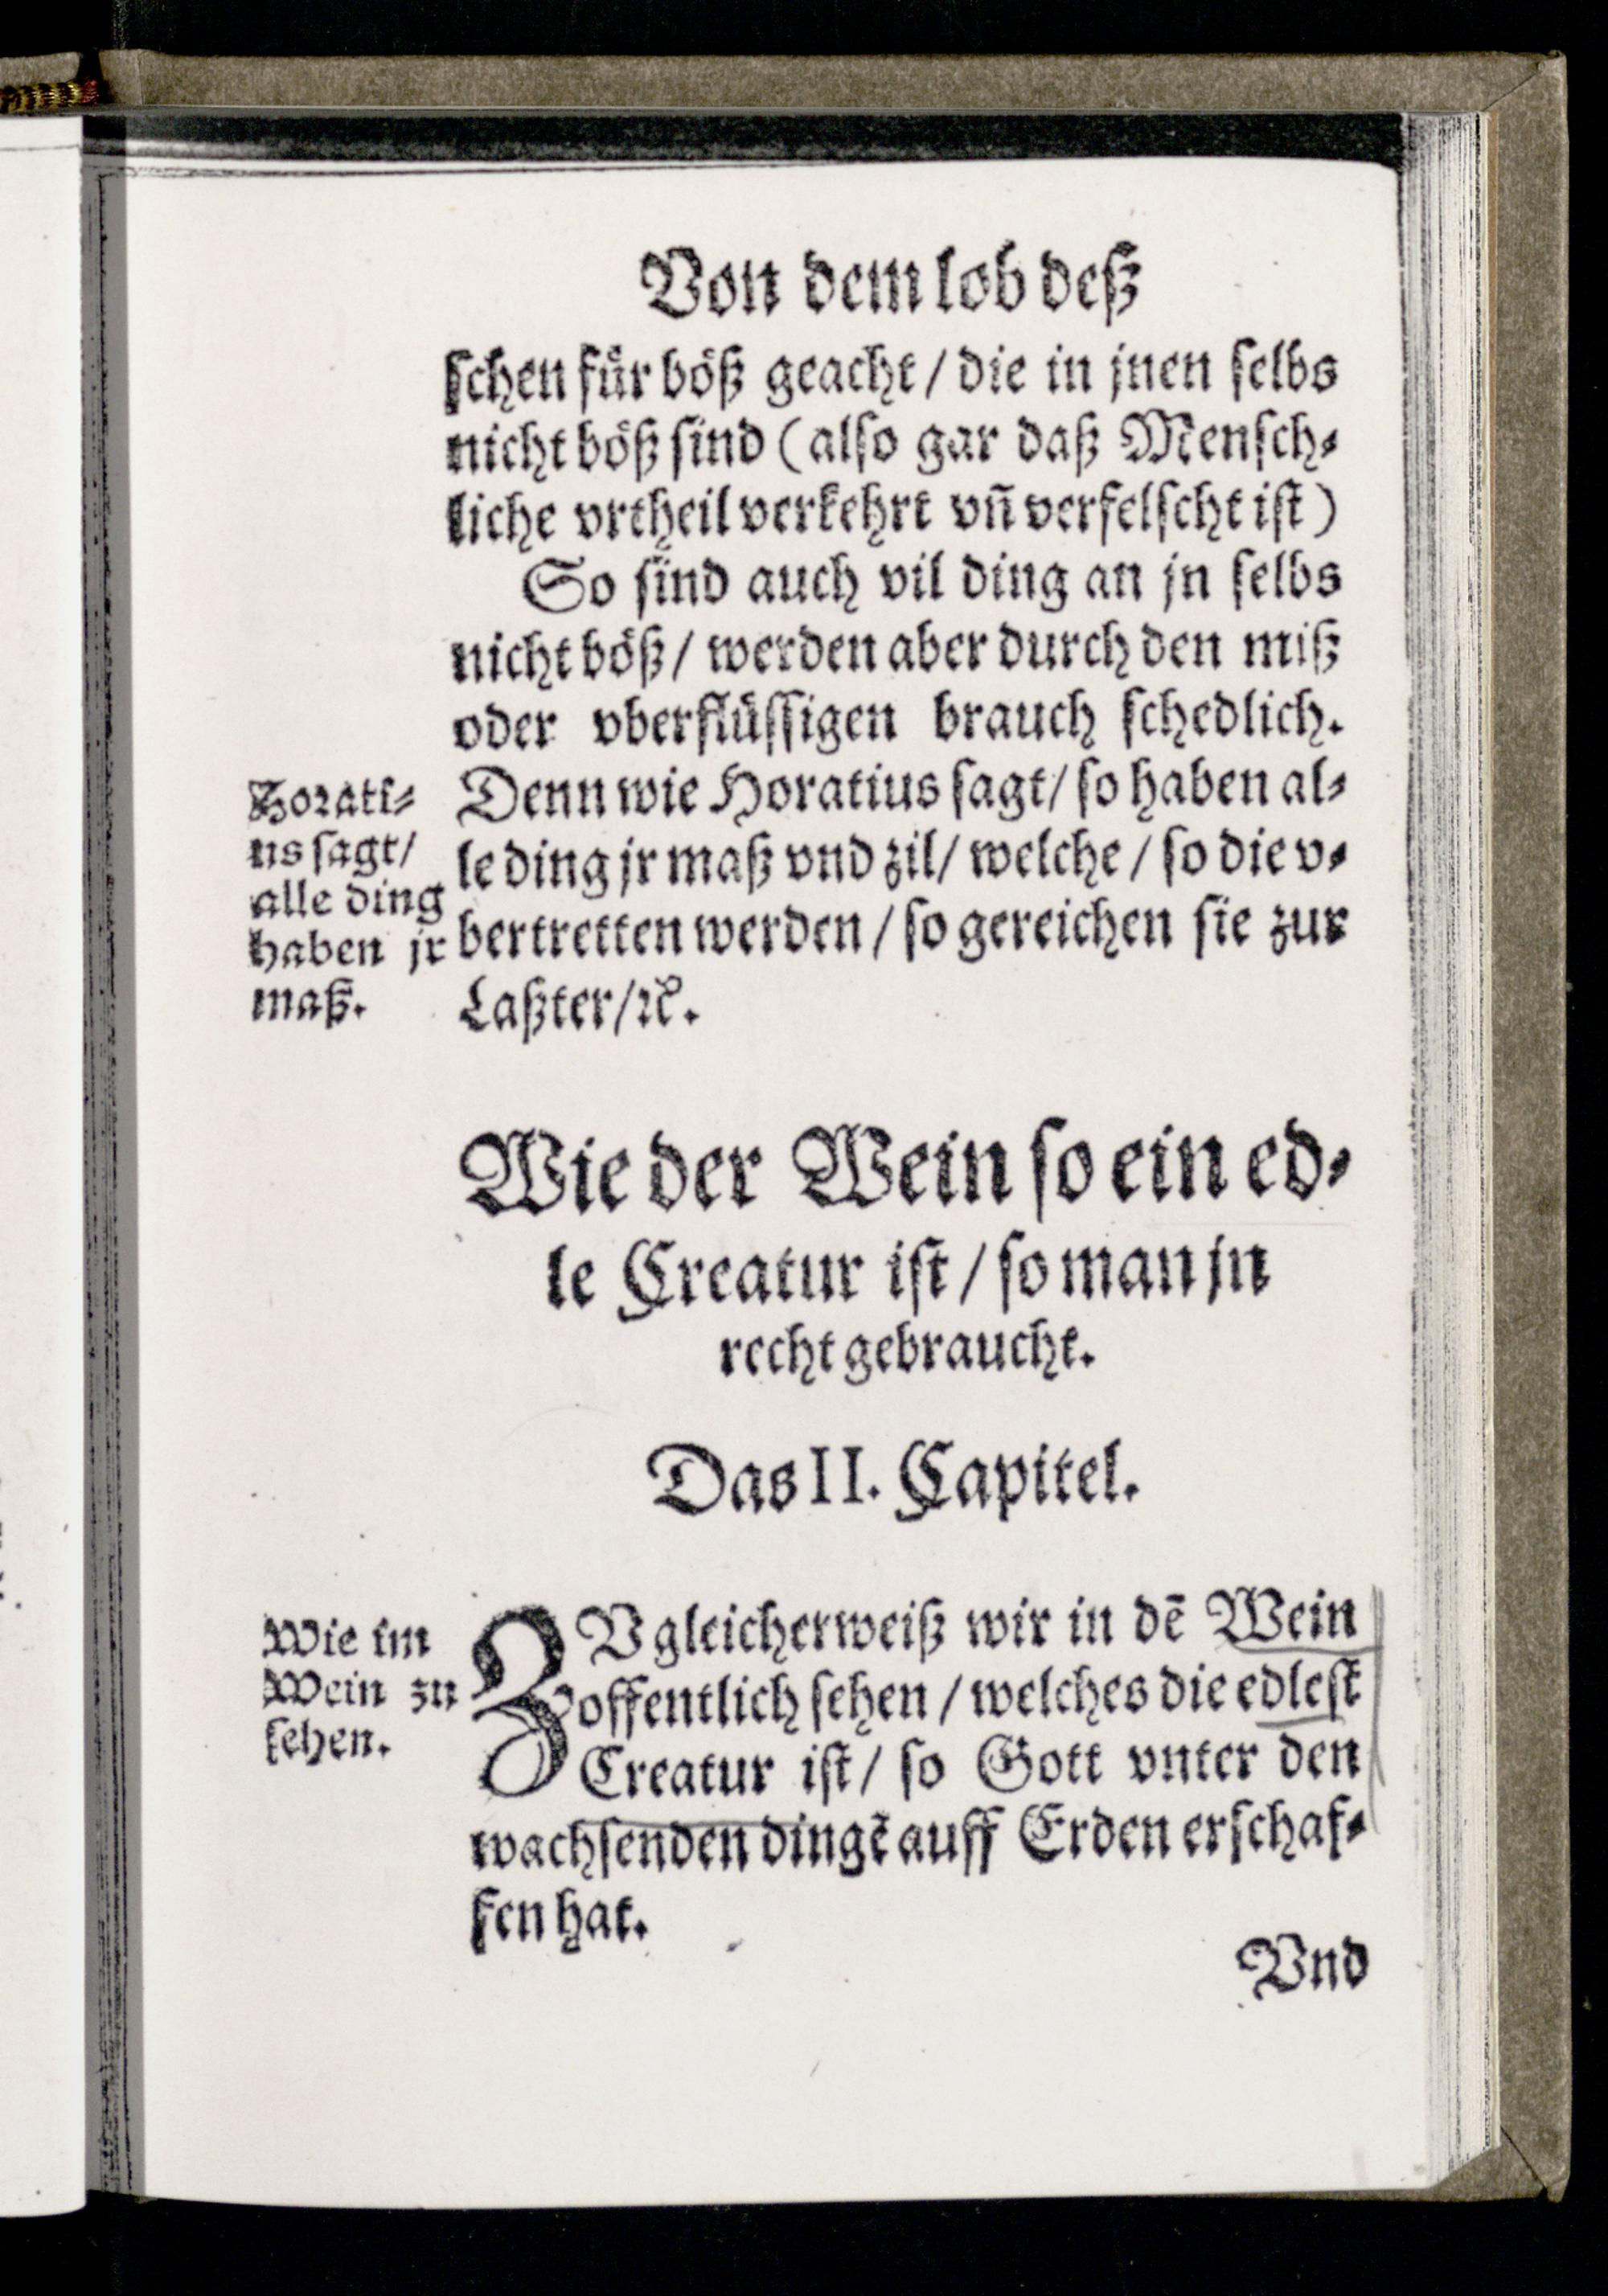 Von dem lob deß
ſchen für böß geacht / die in jnen ſelbs
nicht böß ſind (alſo gar daß Menſch⸗
liche vrtheil verkehrt vn̄ verfelſcht iſt)
So ſind auch vil ding an jn ſelbs
nicht böß / werden aber durch den miß
oder vberflüſſigen brauch ſchedlich.
Denn wie Horatius ſagt / ſo haben al⸗
le ding jr maß vnd zil / welche / ſo die v⸗
bertretten werden / ſo gereichen ſie zur
Laßter / ꝛc.
Horati⸗
us ſagt /
alle ding
haben jr
maß.
Wie der Wein ſo ein ed⸗
le Creatur iſt / ſo man jn
recht gebraucht.
Das II. Capitel.
Wie im
Wein zu
ſehen.
ZV gleicherweiß wir in dē Wein
offentlich ſehen / welches die edleſt
Creatur iſt / ſo Gott vnter den
wachſenden dingē auff Erden erſchaf⸗
fen hat.
Vnd